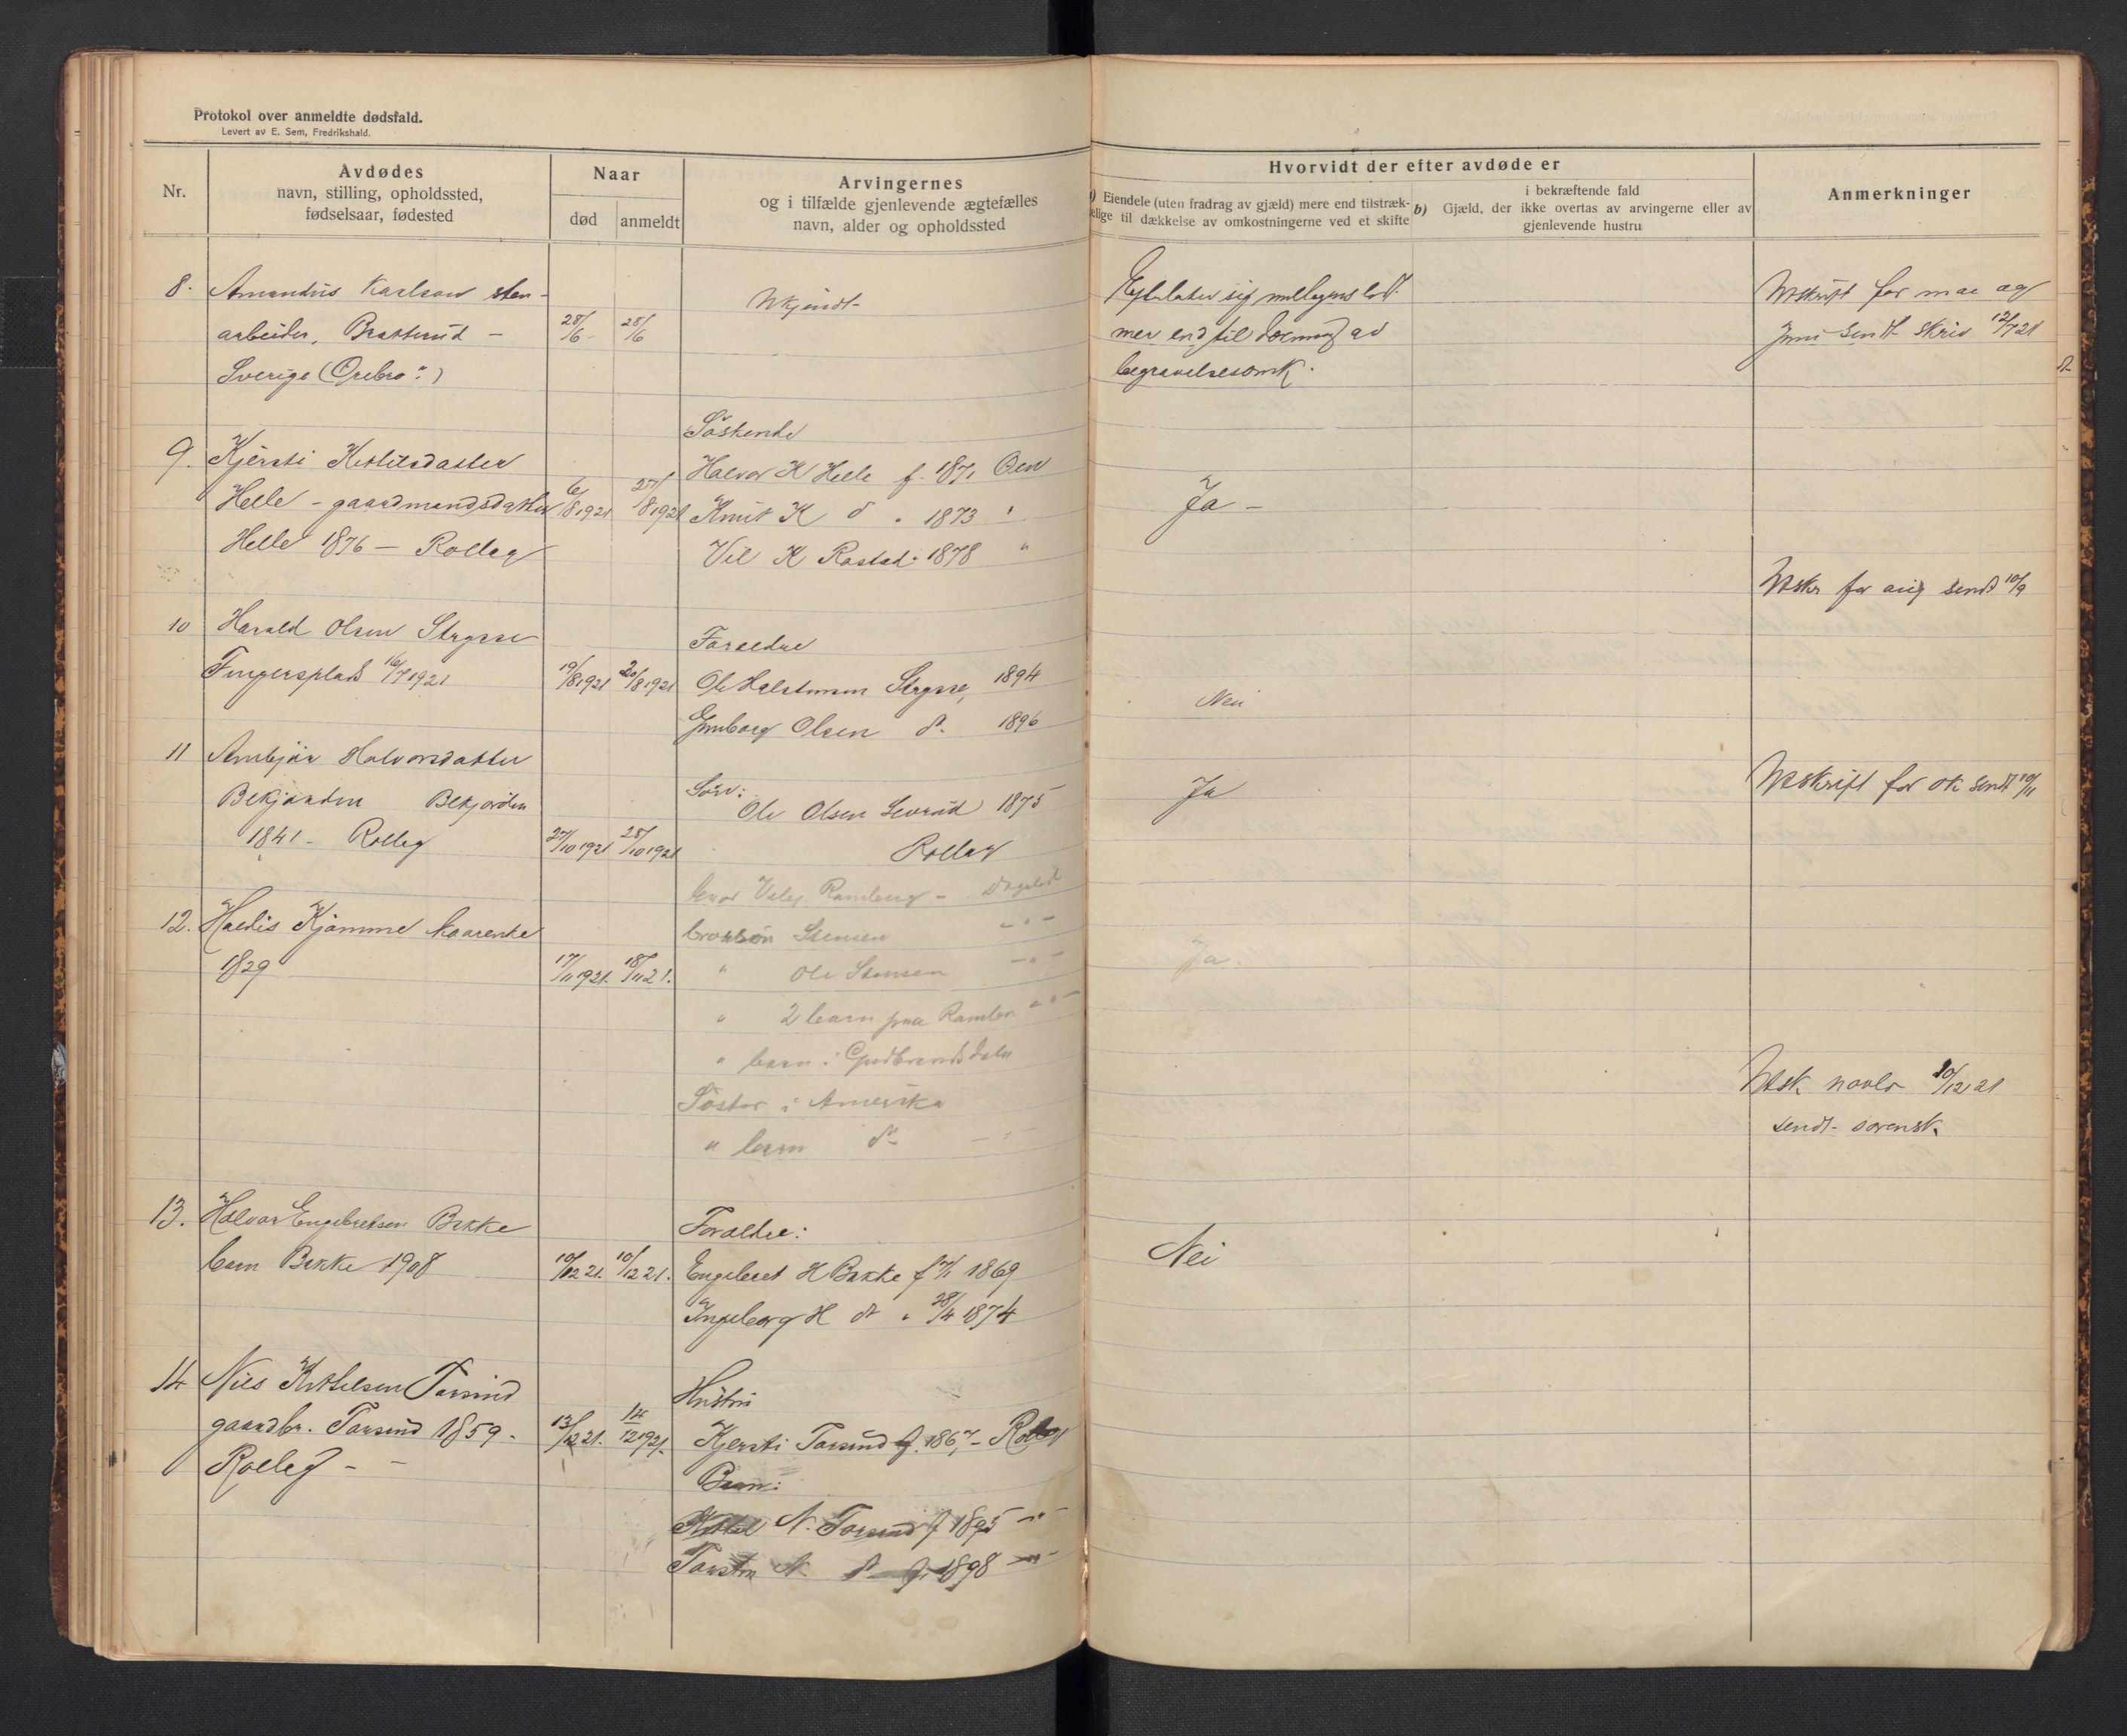 Protokol over anmeldte dødsfald.
Levert av E. Sem, Fredrikshald.
Nr.
Avdødes
navn, stilling, opholdssted,
fødselsaar, fødested
Naar
død
anmeldt
Arvingernes
og i tilfælde gjenlevende ægtefælles
navn, alder og opholdssted
Hvorvidt der efter avdøde er
a) Eiendele (uten fradrag av gjæld) mere end tilstræk-
kelige til dækkelse av omkostningerne ved et skifte
i bekræftende fald
b) Gjæld, der ikke overtas av arvingerne eller av
gjenlevende hustru
Anmerkninger
8. Amandus Karlson sten-
arbeider, Bratterud - 28/6- 28/6
Sverige (Örebro?)
Ukjendt
mer end til av
begravelsesomk.
Utskrift for mai og
Juni sendt Skriv 12/7 21
9. Kjersti Kittilsdatter
Helle - gaardmandsdatter 6/8 1921 27/8 1921
Helle 1876 - Rolleg
Söskende
Halvor K Helle f. 1871
Knut K do " 1873 "
K Rostad " 1878 "
Ja -
Utskr for aug sendt 10/9
10 Harald Olsen Strysse
Fingersplads 16/7 1921 19/8 1921 20/8 1921
Foraeldre
Ole Halstensen Strysse, 1894
Olsen dt. 1896
Nei
11 Anbjör Halvorsdatter
Bekjorden Bekjorden
1841 - Rolleg 27/10 1921 28/10 1921
Sön:
Ole Olsen 1875
Rollag
Ja
Utskrift for okt sendt 10/11
12. Haldis Kjomme kaarenke
1829 17/11 1921. 18/11 21.
Ramberg -
Brorsön Stensen - " -
" Ole Stensen - " -
" 2 barn paa - " -
" barn i Gudbrandsdalen
Söster i Amerika
" barn dt - " -
Ja.
Utsk novbr 10/12 21
sendt sorensk.
13. Halvor Engebretsen Bekke
barn Bekke 1908 10/12 21. 10/12 21.
Foraldre:
Engebret H Bekke f 1869
Ingeborg H dt " 28/4 1874
Nei
14 Nils Kittelsen Torsrud
gaardbr. Torsrud 1859. 13/12 21. 14/12 1921.
Rolleg - -
Hustru
Kjersti Torsrud f. 1867 - Rollag
Barn:
Kittel N. Torsrud f 1895 - " -
Torsten N. dt f. 1898 - " -